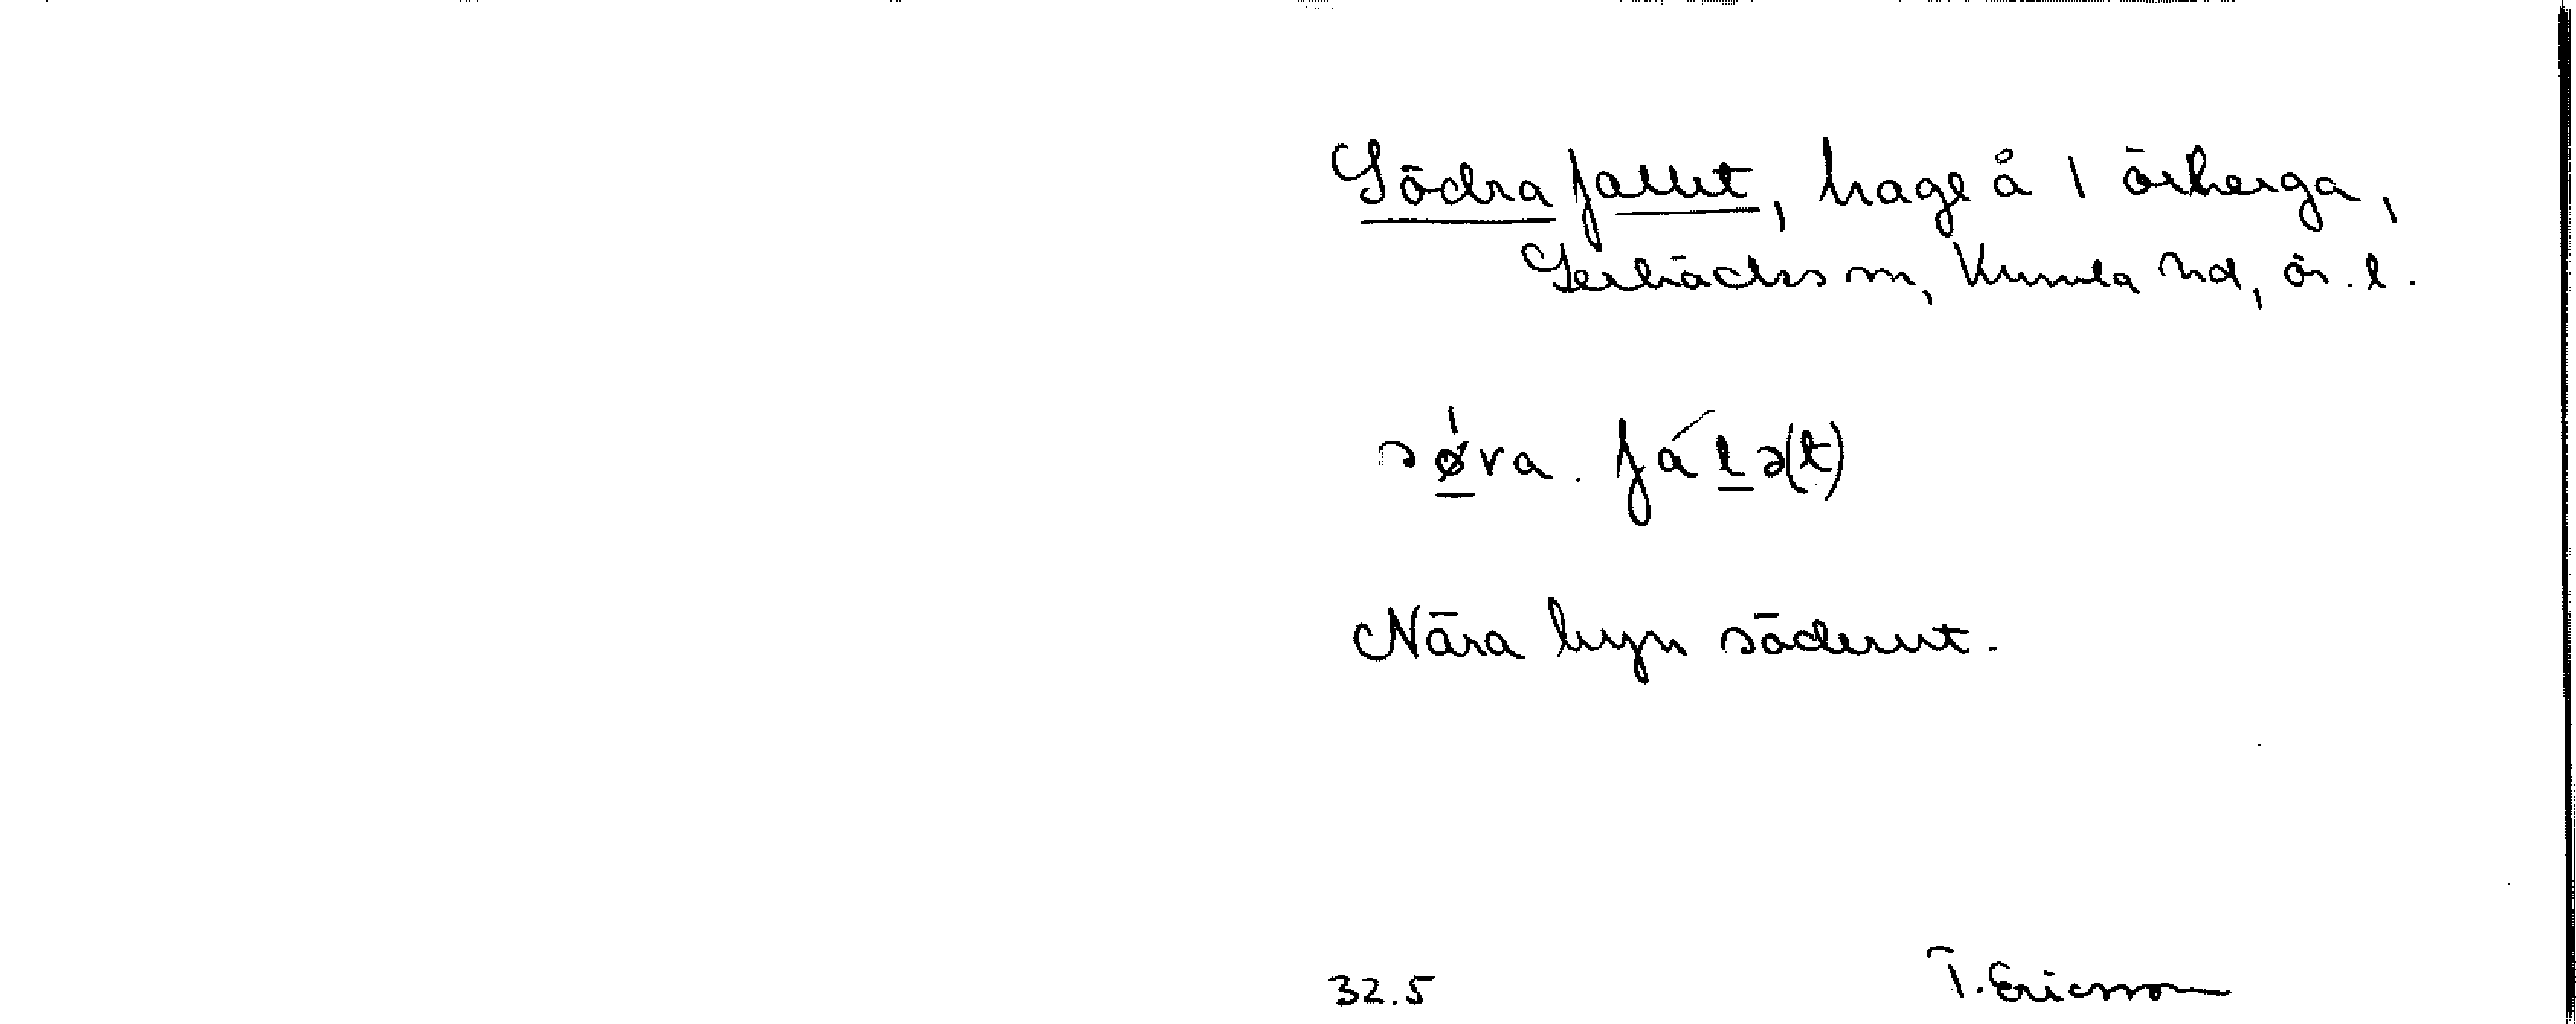 Södra fallet, hage å 1 Örberga,
Lerbäcks sn, Kumla hd, Ör. l.
sǿ̱ra. fá ḻə(t)
Nära byn söderut.
32.5 T. Ericsson